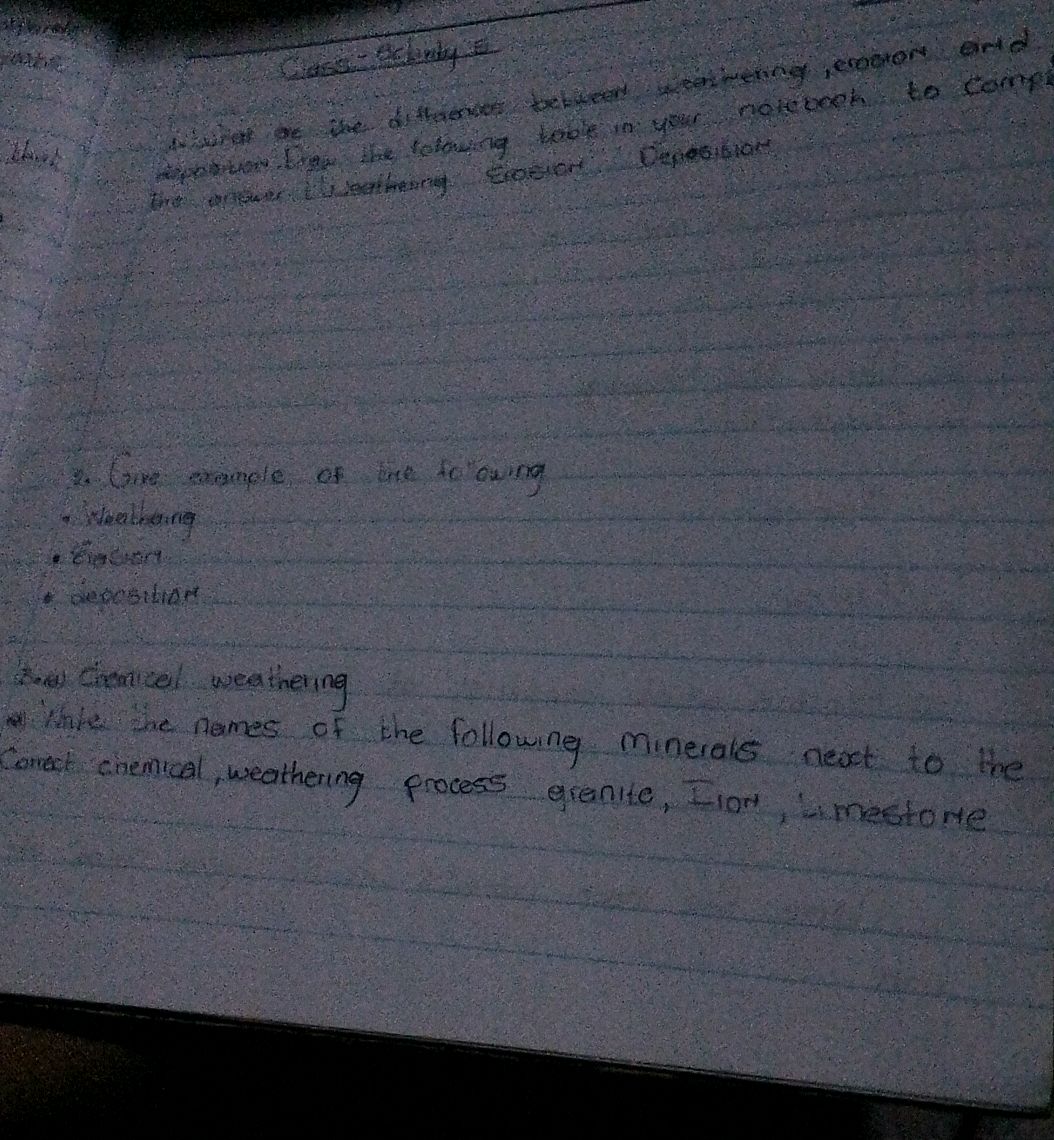 Class-Activity E
What are the differences between weathering, erosion and
deposition. Draw the following table in your notebook to Comple
the answer Weathering Erosion Deposition
2. Give example of the following
• Weathering
• Erosion
• deposition
3.a) Chemical weathering
a) Write the names of the following minerals next to the
Correct chemical, weathering process granite, Iron, Limestone
that